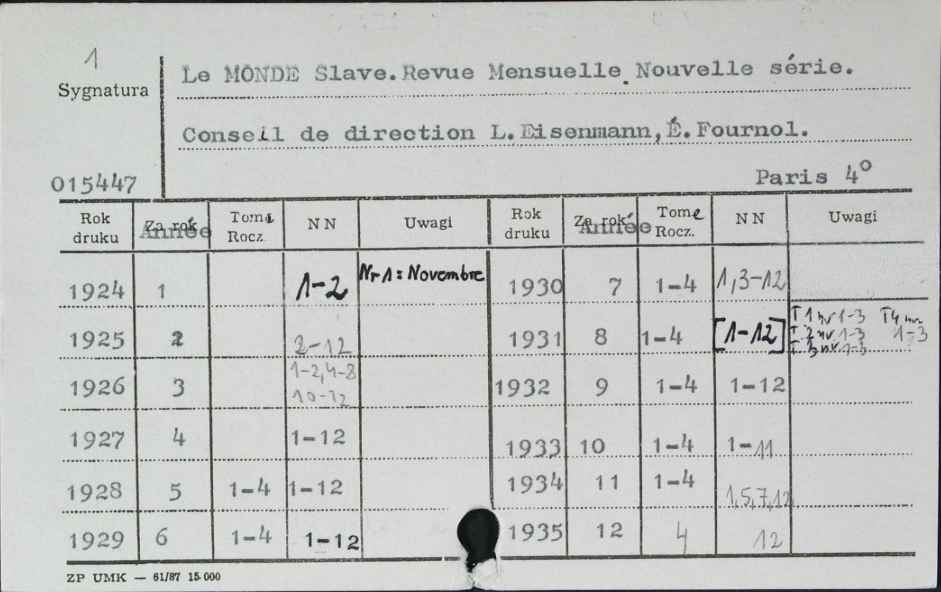 1
Sygnatura
Le MONDE Slave. Revue Mensuelle. Nouvelle série.
Conseil de direction L. Eisenmann, É. Fournol.
015447
Paris 4°
Rok druku Za rok Année Tome Rocz. NN Uwagi Rok druku Za rok Année Tome Rocz. NN Uwagi
1924 1 1-2 Nr 1 = Novembre 1930 7 1-4 1,3-12
1925 2 2-12 1931 8 1-4 [1-12] T 1 nr 1-3 T 4 nr 1-3
T. 2 nr 1-3
T. 3 nr 1-3
1926 3 1-2, 4-8 10-12 1932 9 1-4 1-12
1927 4 1-12 1933 10 1-4 1-11
1928 5 1-4 1-12 1934 11 1-4 1,5,7,12
1929 6 1-4 1-12 1935 12 4 12
ZP UMK — 61/87 15 000